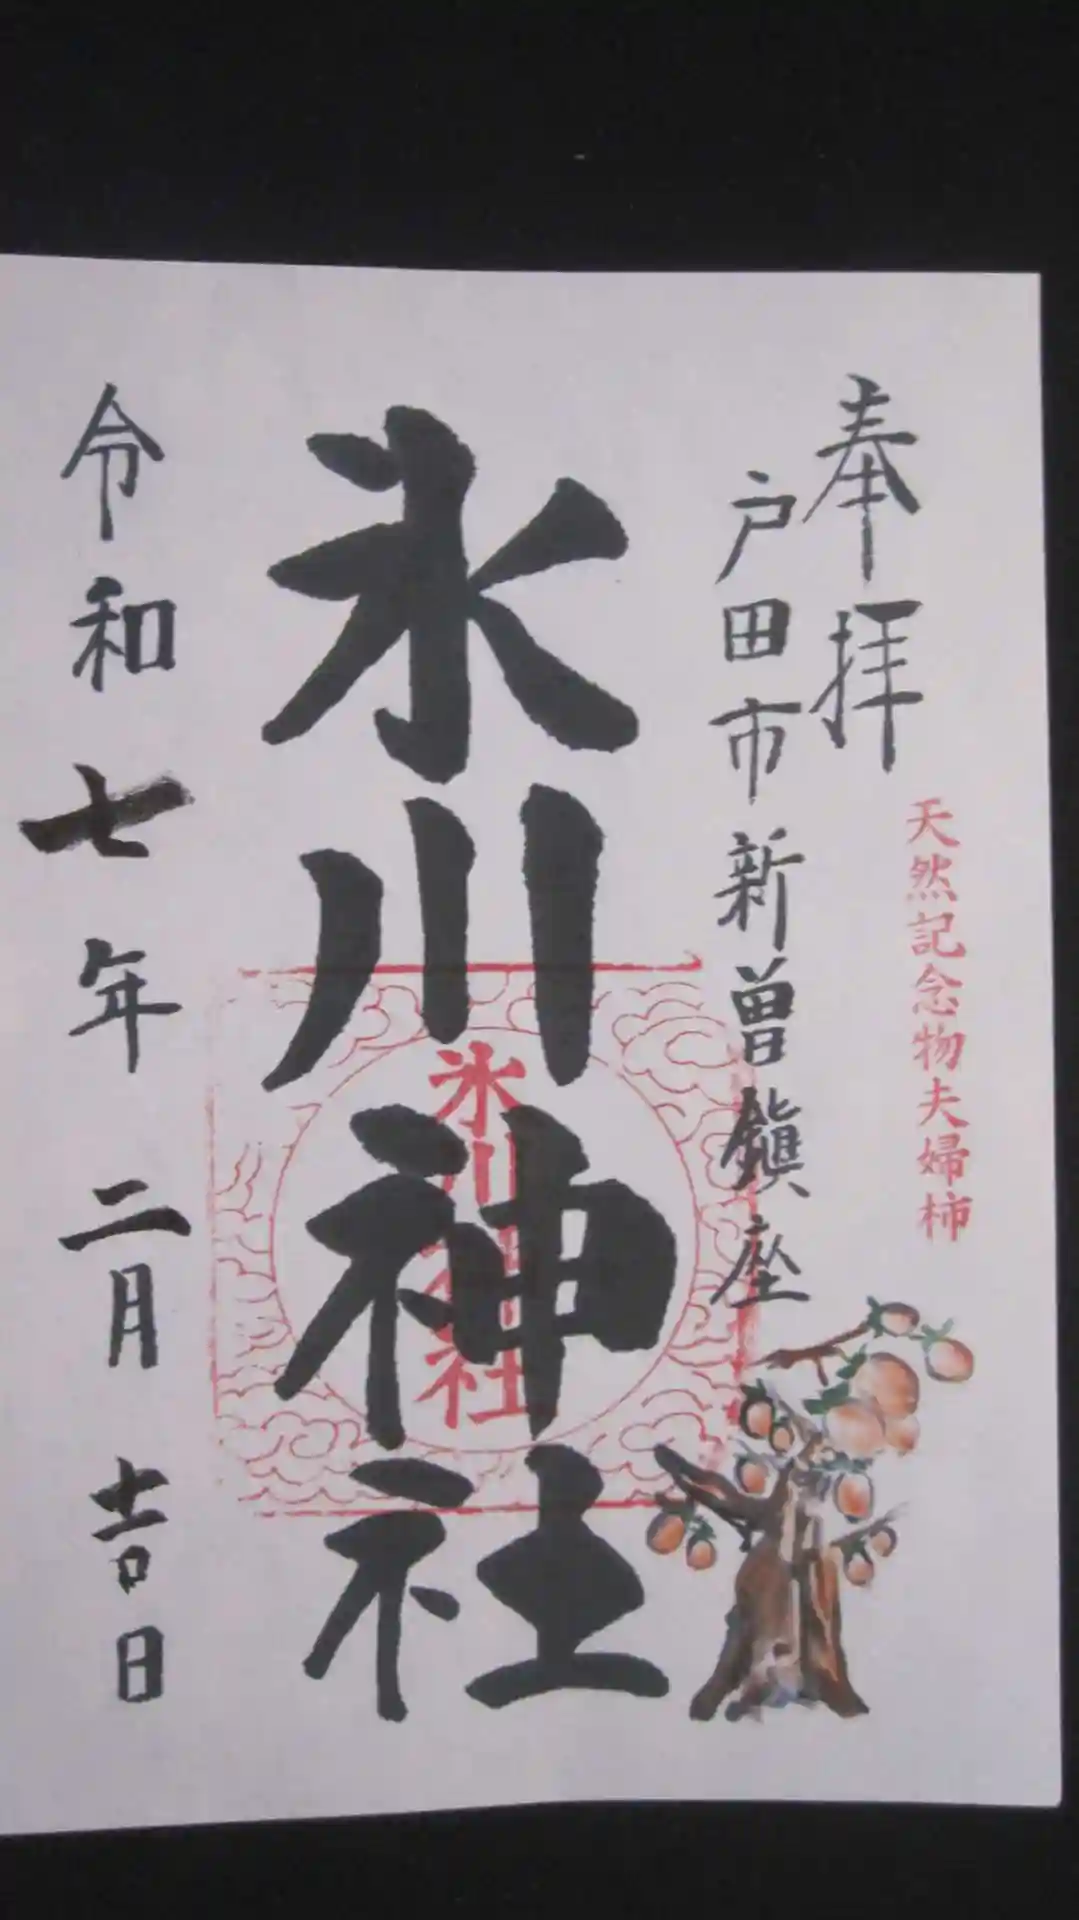 天然記念物夫婦柿
奉拝
戸田市新曽鎮座
氷川神社
氷川神社
令和七年二月吉日